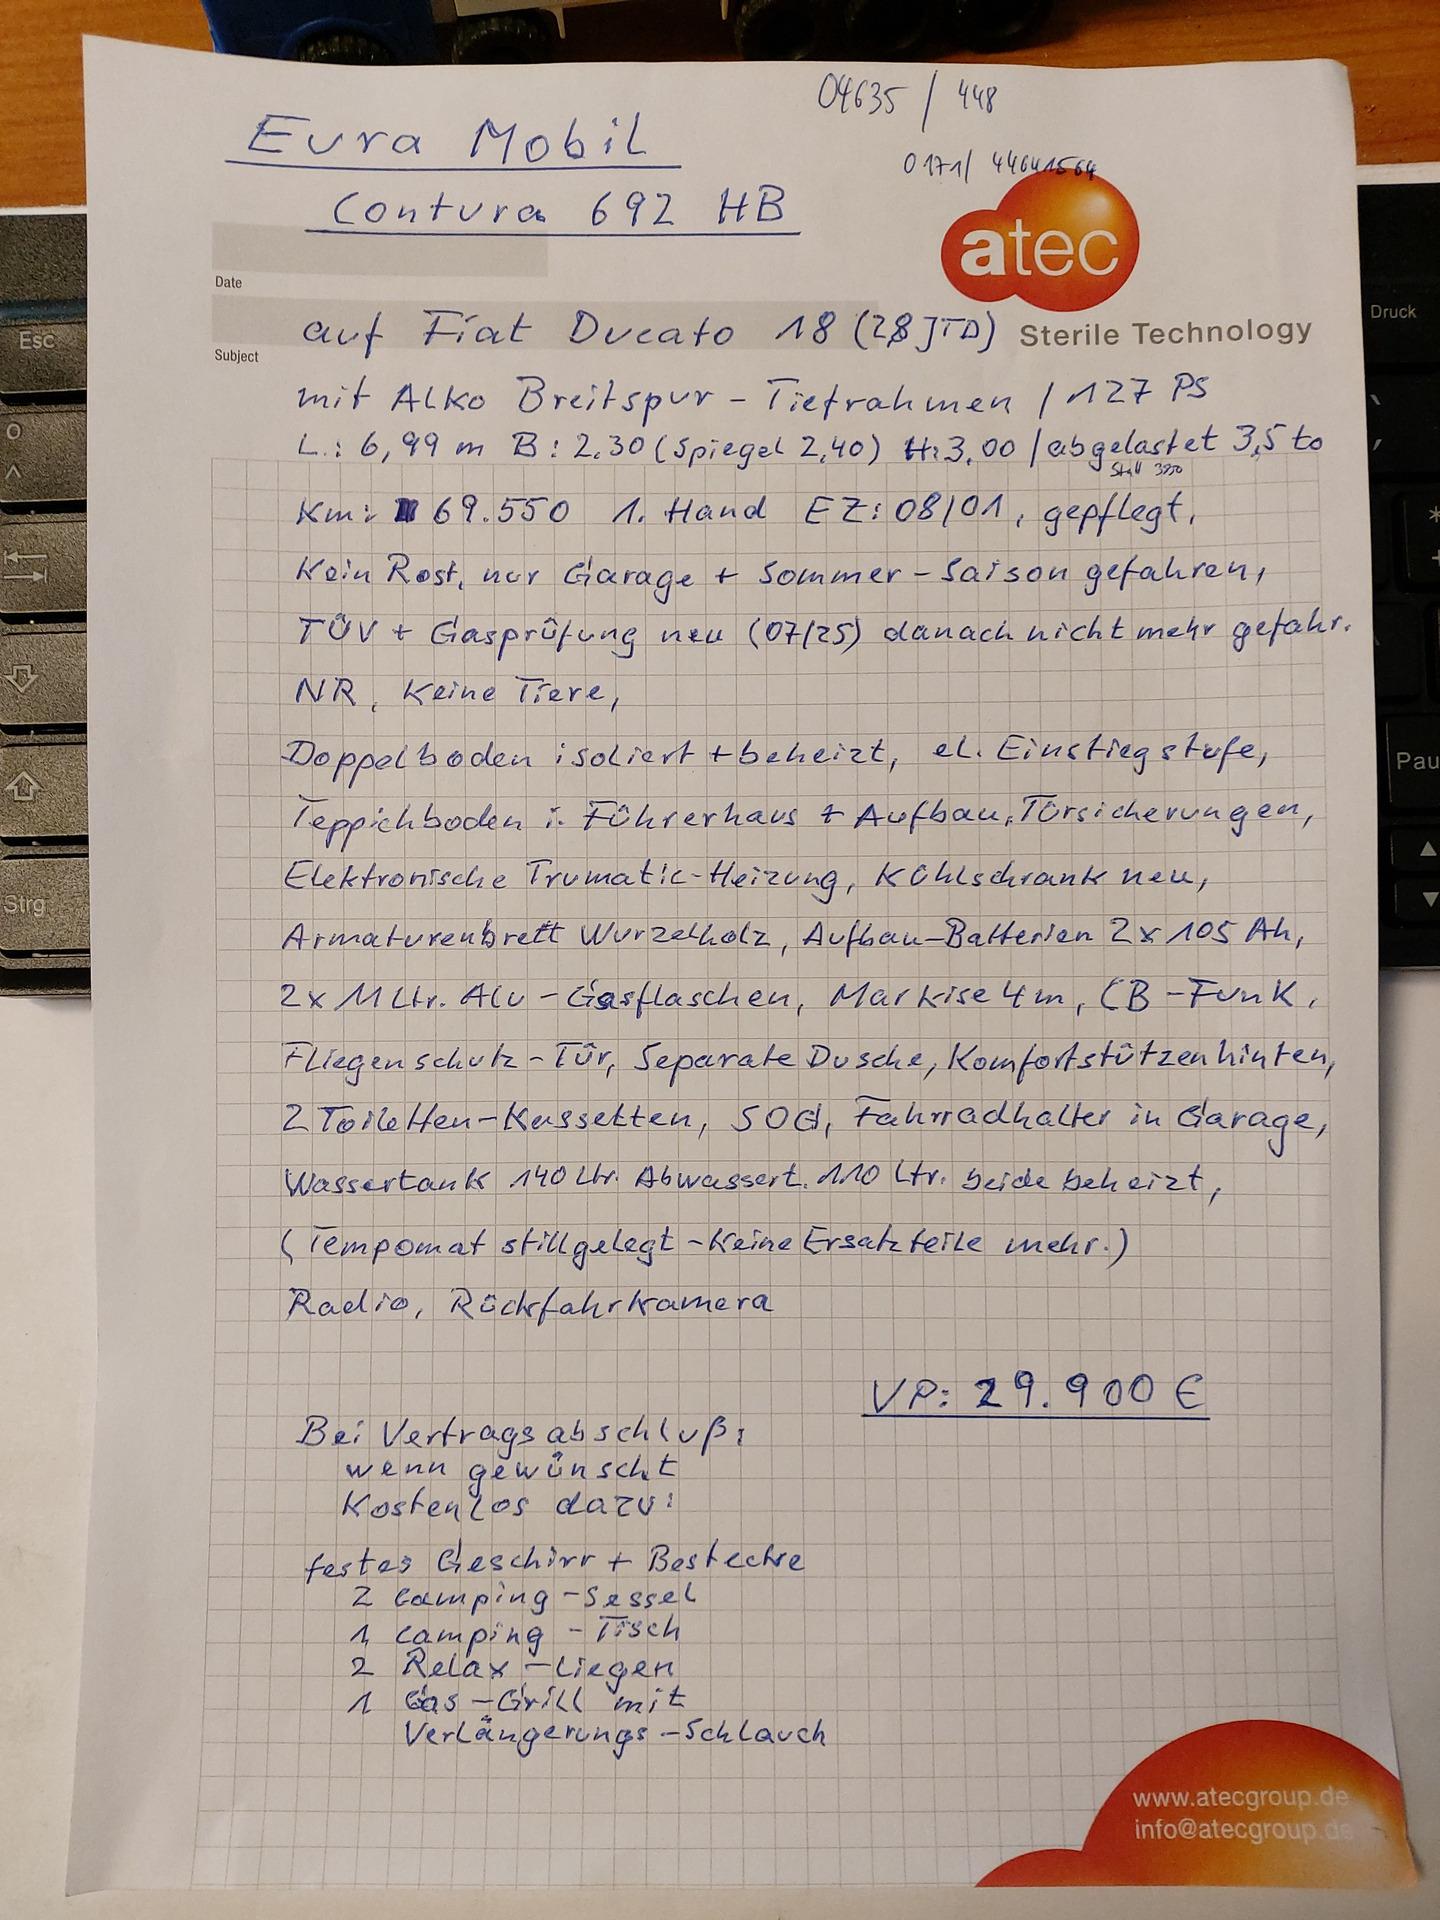 04635 / 448
Eura Mobil
0171/ 44641564
Contura 692 HB
atec
Date
auf Fiat Ducato 18 (2,8 JTD)
Sterile Technology
Subject
mit Alko Breitspur - Tiefrahmen / 127 PS
L.: 6,99 m B: 2.30 (Spiegel 2,40) H: 3,00 / abgelastet 3,5 to
Km: 69.550 1. Hand EZ: 08/01, gepflegt,
Kein Rost, nur Garage + Sommer-Saison gefahren,
TÜV + Gasprüfung neu (07/25) danach nicht mehr gefahr.
NR, Keine Tiere,
Doppelboden isoliert + beheizt, el. Einstiegstufe,
Teppichboden i. Führerhaus + Aufbau, Türsicherungen,
Elektronische Trumatic-Heizung, Kühlschrank neu,
Armaturenbrett Wurzelholz, Aufbau-Batterien 2x 105 Ah,
2x 11 Ltr. Alu-Gasflaschen, Markise 4m, CB-Funk,
Fliegenschutz-Tür, Separate Dusche, Komfortstützen hinten,
2 Toiletten-Kassetten, SOG, Fahrradhalter in Garage,
Wassertank 140 Ltr. Abwassert. 110 Ltr. beide beheizt,
(Tempomat stillgelegt - Keine Ersatzteile mehr.)
Radio, Rückfahrkamera
VP: 29.900 €
Bei Vertragsabschluß:
wenn gewünscht
Kostenlos dazu:
festes Geschirr + Bestecke
2 Camping-Sessel
1 Camping-Tisch
2 Relax-Liegen
1 Gas-Grill mit
Verlängerungs-Schlauch
www.atecgroup.de
info@atecgroup.de
Esc
Strg
Druck
Pau